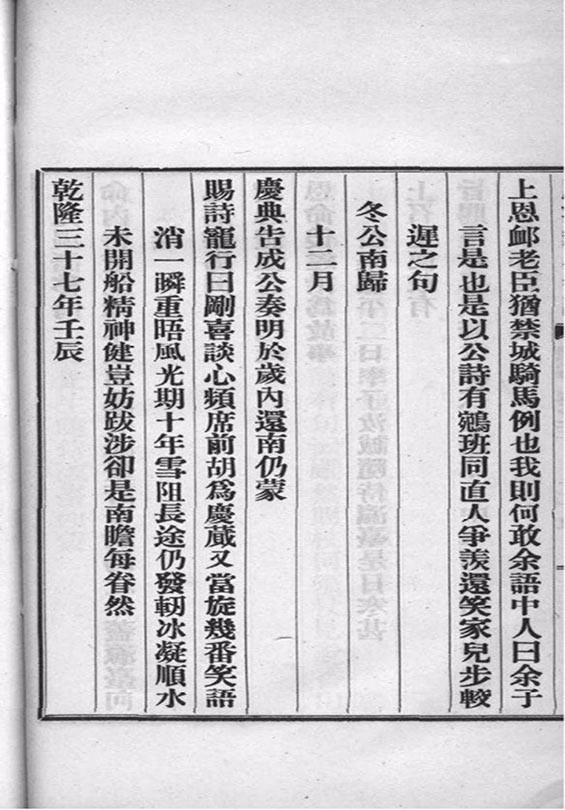 上恩䘏老臣猶禁城騎馬例也我則何敢余語中人曰余于
言是也是以公詩有鵷班同直人爭羨還笑家兒步較
遲之句
冬公南歸
十二月
慶典告成公奏明於歲內還南仍蒙
賜詩寵行曰剛喜談心頻席前胡為慶蕆又當旋幾番笑語
消一瞬重晤風光期十年雪阻長途仍發軔冰凝順水
未開船精神健豈妨跋涉卻是南瞻每眷然
乾隆三十七年壬辰